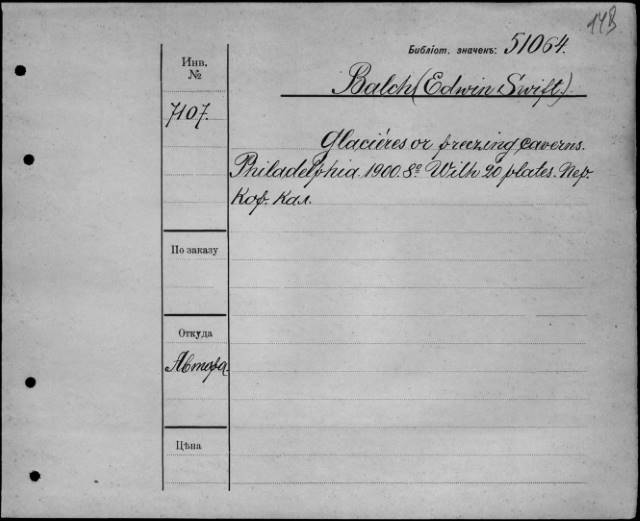 148
Библіот. значекъ: 51064.
Balch (Edwin Swift.)
Инв.
№
7107.
Glaciéres or freezing caverns.
Philadelphia. 1900. 8º. With 20 plates. Пер.
Кор. Кал.
По заказу
Откуда
Автора.
Цѣна